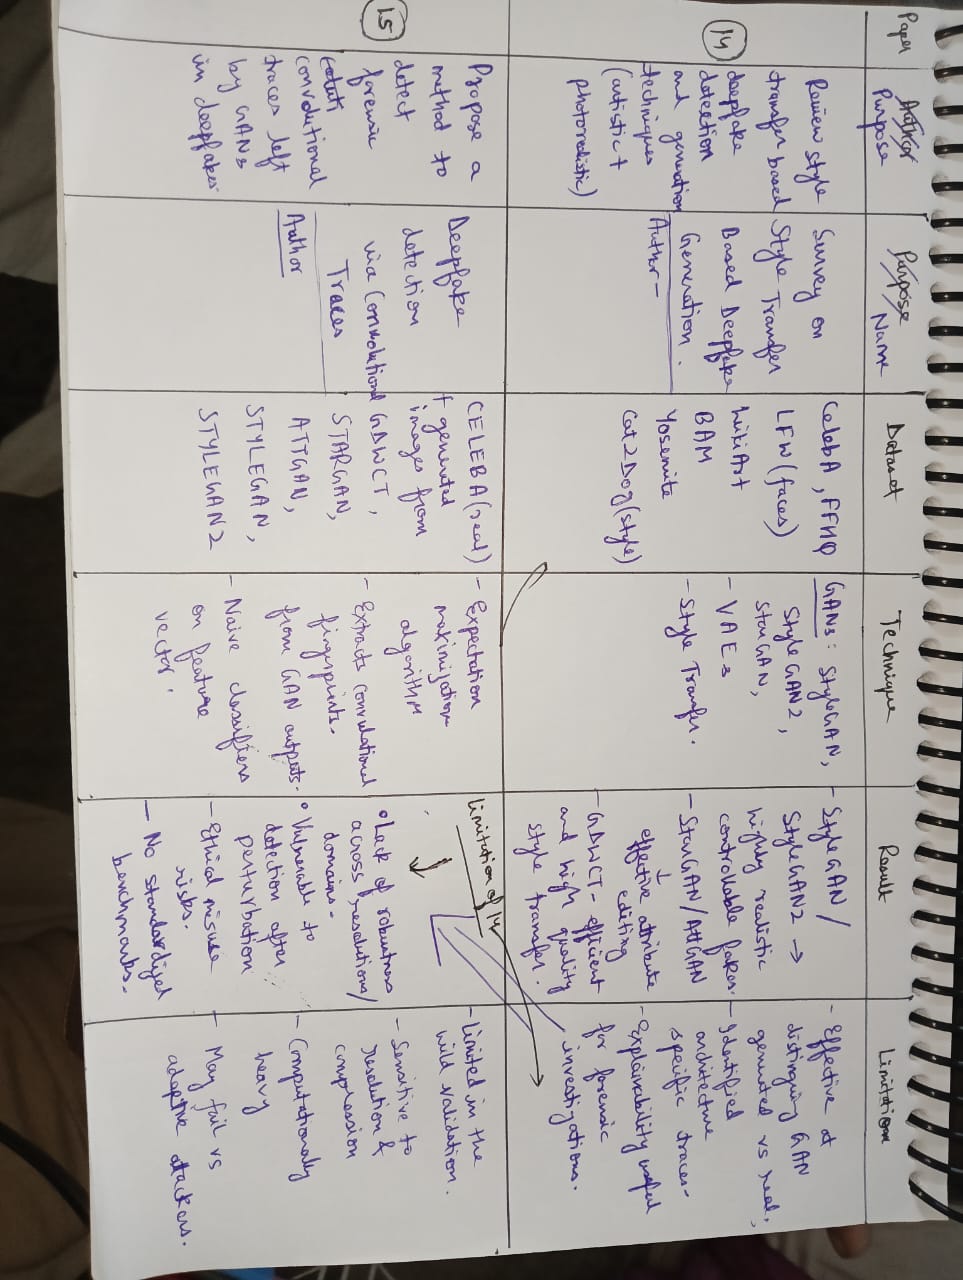 Paper
Author
Purpose
Purpose/
Name
Dataset
Technique
Result
Limitation
14
Review style
transfer based
deepfake
detection
and generation
techniques
(artistic +
photorealistic)
Survey on
Style Transfer
Based Deepfake
Generation.
Author -
CelebA, FFHQ
LFW (faces)
WikiArt
BAM
Yosemite
Cat2Dog (style)
GANs: StyleGAN,
StyleGAN2,
StarGAN,
- VAEs
- Style Transfer.
- StyleGAN/
StyleGAN2 →
highly realistic
controllable fakes.
- StarGAN/AttGAN
↓
effective attribute
editing
- GDWCT - efficient
and high quality
style transfer.
- Effective at
distinguing GAN
generated vs real.
- Identified
architecture
specific traces-
- Explainability useful
for forensic
investigations.
15
Propose a
method to
detect
forensic
convolutional
traces left
by GANs
in deepfakes.
Deepfake
detection
via Convolutional
Traces
Author
CELEBA (real)
+ generated
images from
GDWCT,
STARGAN,
ATTGAN,
STYLEGAN,
STYLEGAN2
- Expectation
maximization
algorithm
- Extracts convolutional
fingerprints.
from GAN outputs.
- Naive classifiers
on feature
vector.
limitation of 14
• Lack of robustness
across resolutions/
domains.
• Vulnerable to
detection after
perturbation
- Ethical misuse
risks.
- No standardized
benchmarks.
- Limited in the
wild validation.
- Sensitive to
resolution &
compression
- Computationally
heavy
- May fail vs
adaptive attackers.